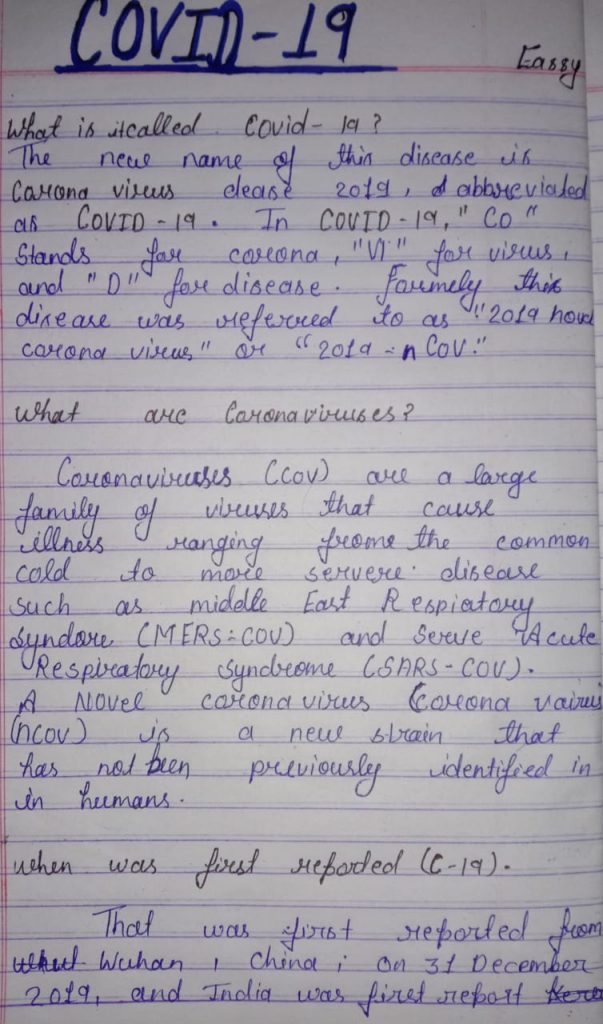 COVID-19
Eassy
What is itcalled Covid-19?
The new name of this disease is
Carona virus dease 2019, d abbreviated
as COVID-19. In COVID-19, "Co"
Stands for corona, "VI" for virus,
and "D" for disease. Formely this
disease was referred to as "2019 novel
corona virus" or "2019-nCoV."
What are Coronaviruses?
Coronaviruses (Ccov) are a large
family of viruses that cause
illness ranging frome the common
cold to more servere disease
such as middle East Respiatory
Syndore (MERS-COV) and Serve Acute
Respiratory Syndrome (SARS-COV).
A Novel corona virus (Corona vairus
(ncov) is a new strain that
has not been previously identified in
in humans.
when was first reported (C-19).
That was first reported from
Wuhan, China, on 31 December
2019, and India was first report